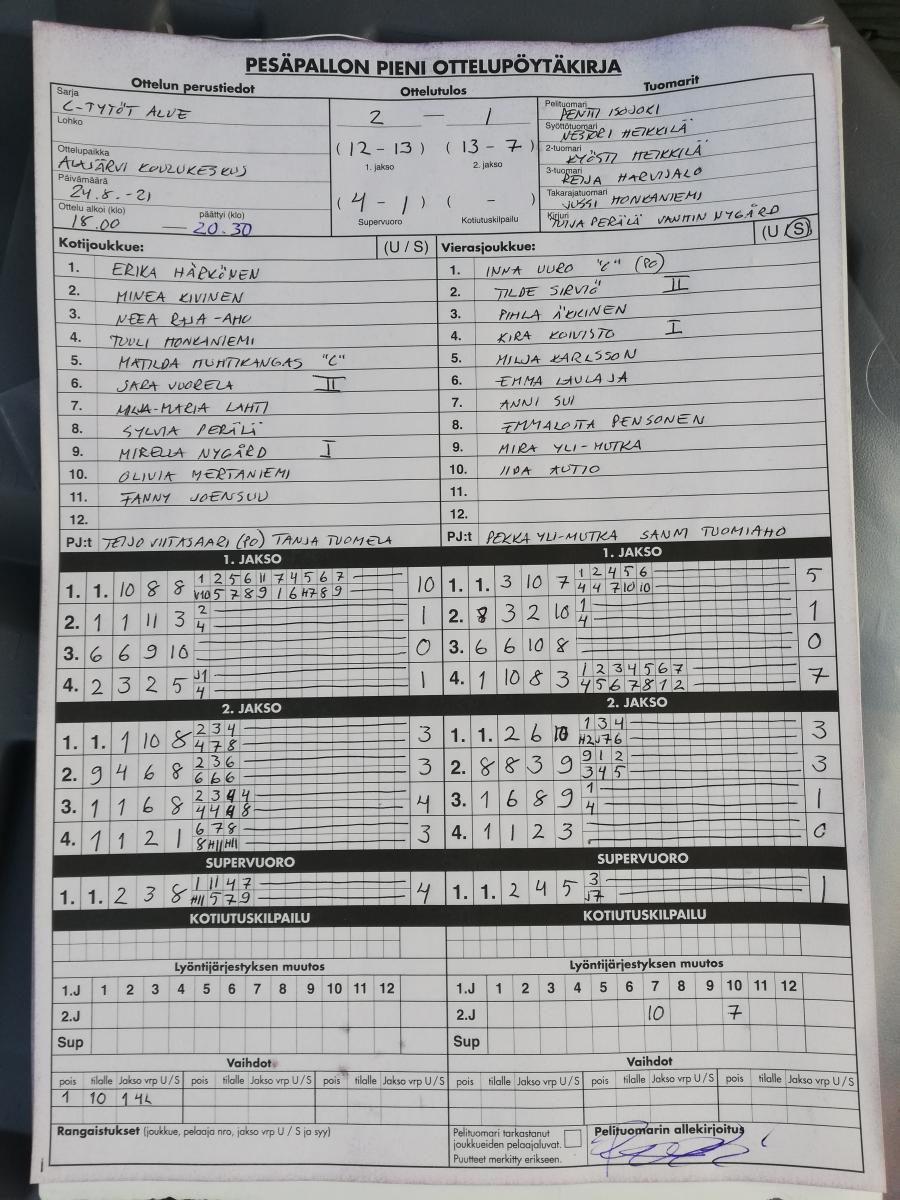 PESÄPALLON PIENI OTTELUPÖYTÄKIRJA
Ottelun perustiedot Ottelutulos Tuomarit
Sarja C-TYTÖT ALUE
Lohko
Ottelupaikka ALAJÄRVI KOULUKESKUS
Päivämäärä 24.8.-21
Ottelu alkoi (klo) 18.00 — päättyi (klo) 20.30
2 — 1
(12-13) (13-7)
1. jakso 2. jakso
(4-1) ( - )
Supervuoro Kotiutuskilpailu
Pelituomari PENTTI ISOJOKI
Syöttötuomari NESTORI HEIKKILÄ
2-tuomari KYÖSTI HEIKKILÄ
3-tuomari REIJA HARVISALO
Takarajatuomari JUSSI HONKANIEMI
Kirjuri TUIJA PERÄLÄ NYGÅRD
Kotijoukkue: (U / S)
1. ERIKA HÄRKÖNEN
2. MINEA KIVINEN
3. NEEA RAJA-AHO
4. TUULI HONKANIEMI
5. MATILDA HUHTIKANGAS "C"
6. SARA VUORELA II
7. MILJA-MARIA LAHTI
8. SYLVIA PERÄLÄ
9. MIRELLA NYGÅRD I
10. OLIVIA MERTANIEMI
11. FANNY JOENSUU
12.
PJ:t TEIJO VIITASAARI (PO) TANJA TUOMELA
Vierasjoukkue: (U / S)
1. INNA UURO "C" (PO)
2. TILDE SIRVIÖ II
3. PIHLA ÄKKINEN
4. KIRA KOIVISTO I
5. MILJA KARLSSON
6. EMMA LAULAJA
7. ANNI SUI
8. EMMALOTTA PENSONEN
9. MIRA YLI-HUTKA
10. IIDA AUTIO
11.
12.
PJ:t PEKKA YLI-MUTKA SANNI TUOMIAHO
1. JAKSO
1. 1. 10 8 8 1 2 5 6 11 7 4 5 6 7 10
V10 5 7 8 9 1 6 H7 8 9
2. 1 1 11 3 2 1
4
3. 6 6 9 10 0
4. 2 3 2 5 J1 1
4
1. JAKSO
1. 1. 3 10 7 1 2 4 5 6 5
4 4 7 10 10
2. 8 3 2 10 1 1
4
3. 6 6 10 8 0
4. 1 10 8 3 1 2 3 4 5 6 7 7
4 5 6 7 8 1 2
2. JAKSO
1. 1. 1 10 8 2 3 4 3
4 7 8
2. 9 4 6 8 2 3 6 3
6 6 6
3. 1 1 6 8 2 3 4 4 4
4 4 4 8
4. 1 1 2 1 6 7 8 3
8 H11 H11
2. JAKSO
1. 1. 2 6 10 1 3 4 3
H2 J7 6
2. 8 8 3 9 9 1 2 3
3 4 5
3. 1 6 8 9 1 1
4
4. 1 1 2 3 0
SUPERVUORO
1. 1. 2 3 8 1 11 4 7 4
H11 5 7 9
SUPERVUORO
1. 1. 2 4 5 3 1
J7
KOTIUTUSKILPAILU
KOTIUTUSKILPAILU
Lyöntijärjestyksen muutos
1.J 1 2 3 4 5 6 7 8 9 10 11 12
2.J
Sup
Lyöntijärjestyksen muutos
1.J 1 2 3 4 5 6 7 8 9 10 11 12
2.J 10 7
Sup
Vaihdot
pois tilalle Jakso vrp U/S pois tilalle Jakso vrp U/S pois tilalle Jakso vrp U/S
1 10 1 4L
Vaihdot
pois tilalle Jakso vrp U/S pois tilalle Jakso vrp U/S pois tilalle Jakso vrp U/S
Rangaistukset (joukkue, pelaaja nro, jakso vrp U / S ja syy)
Pelituomari tarkastanut
joukkueiden pelaajaluvat.
Puutteet merkitty erikseen.
Pelituomarin allekirjoitus